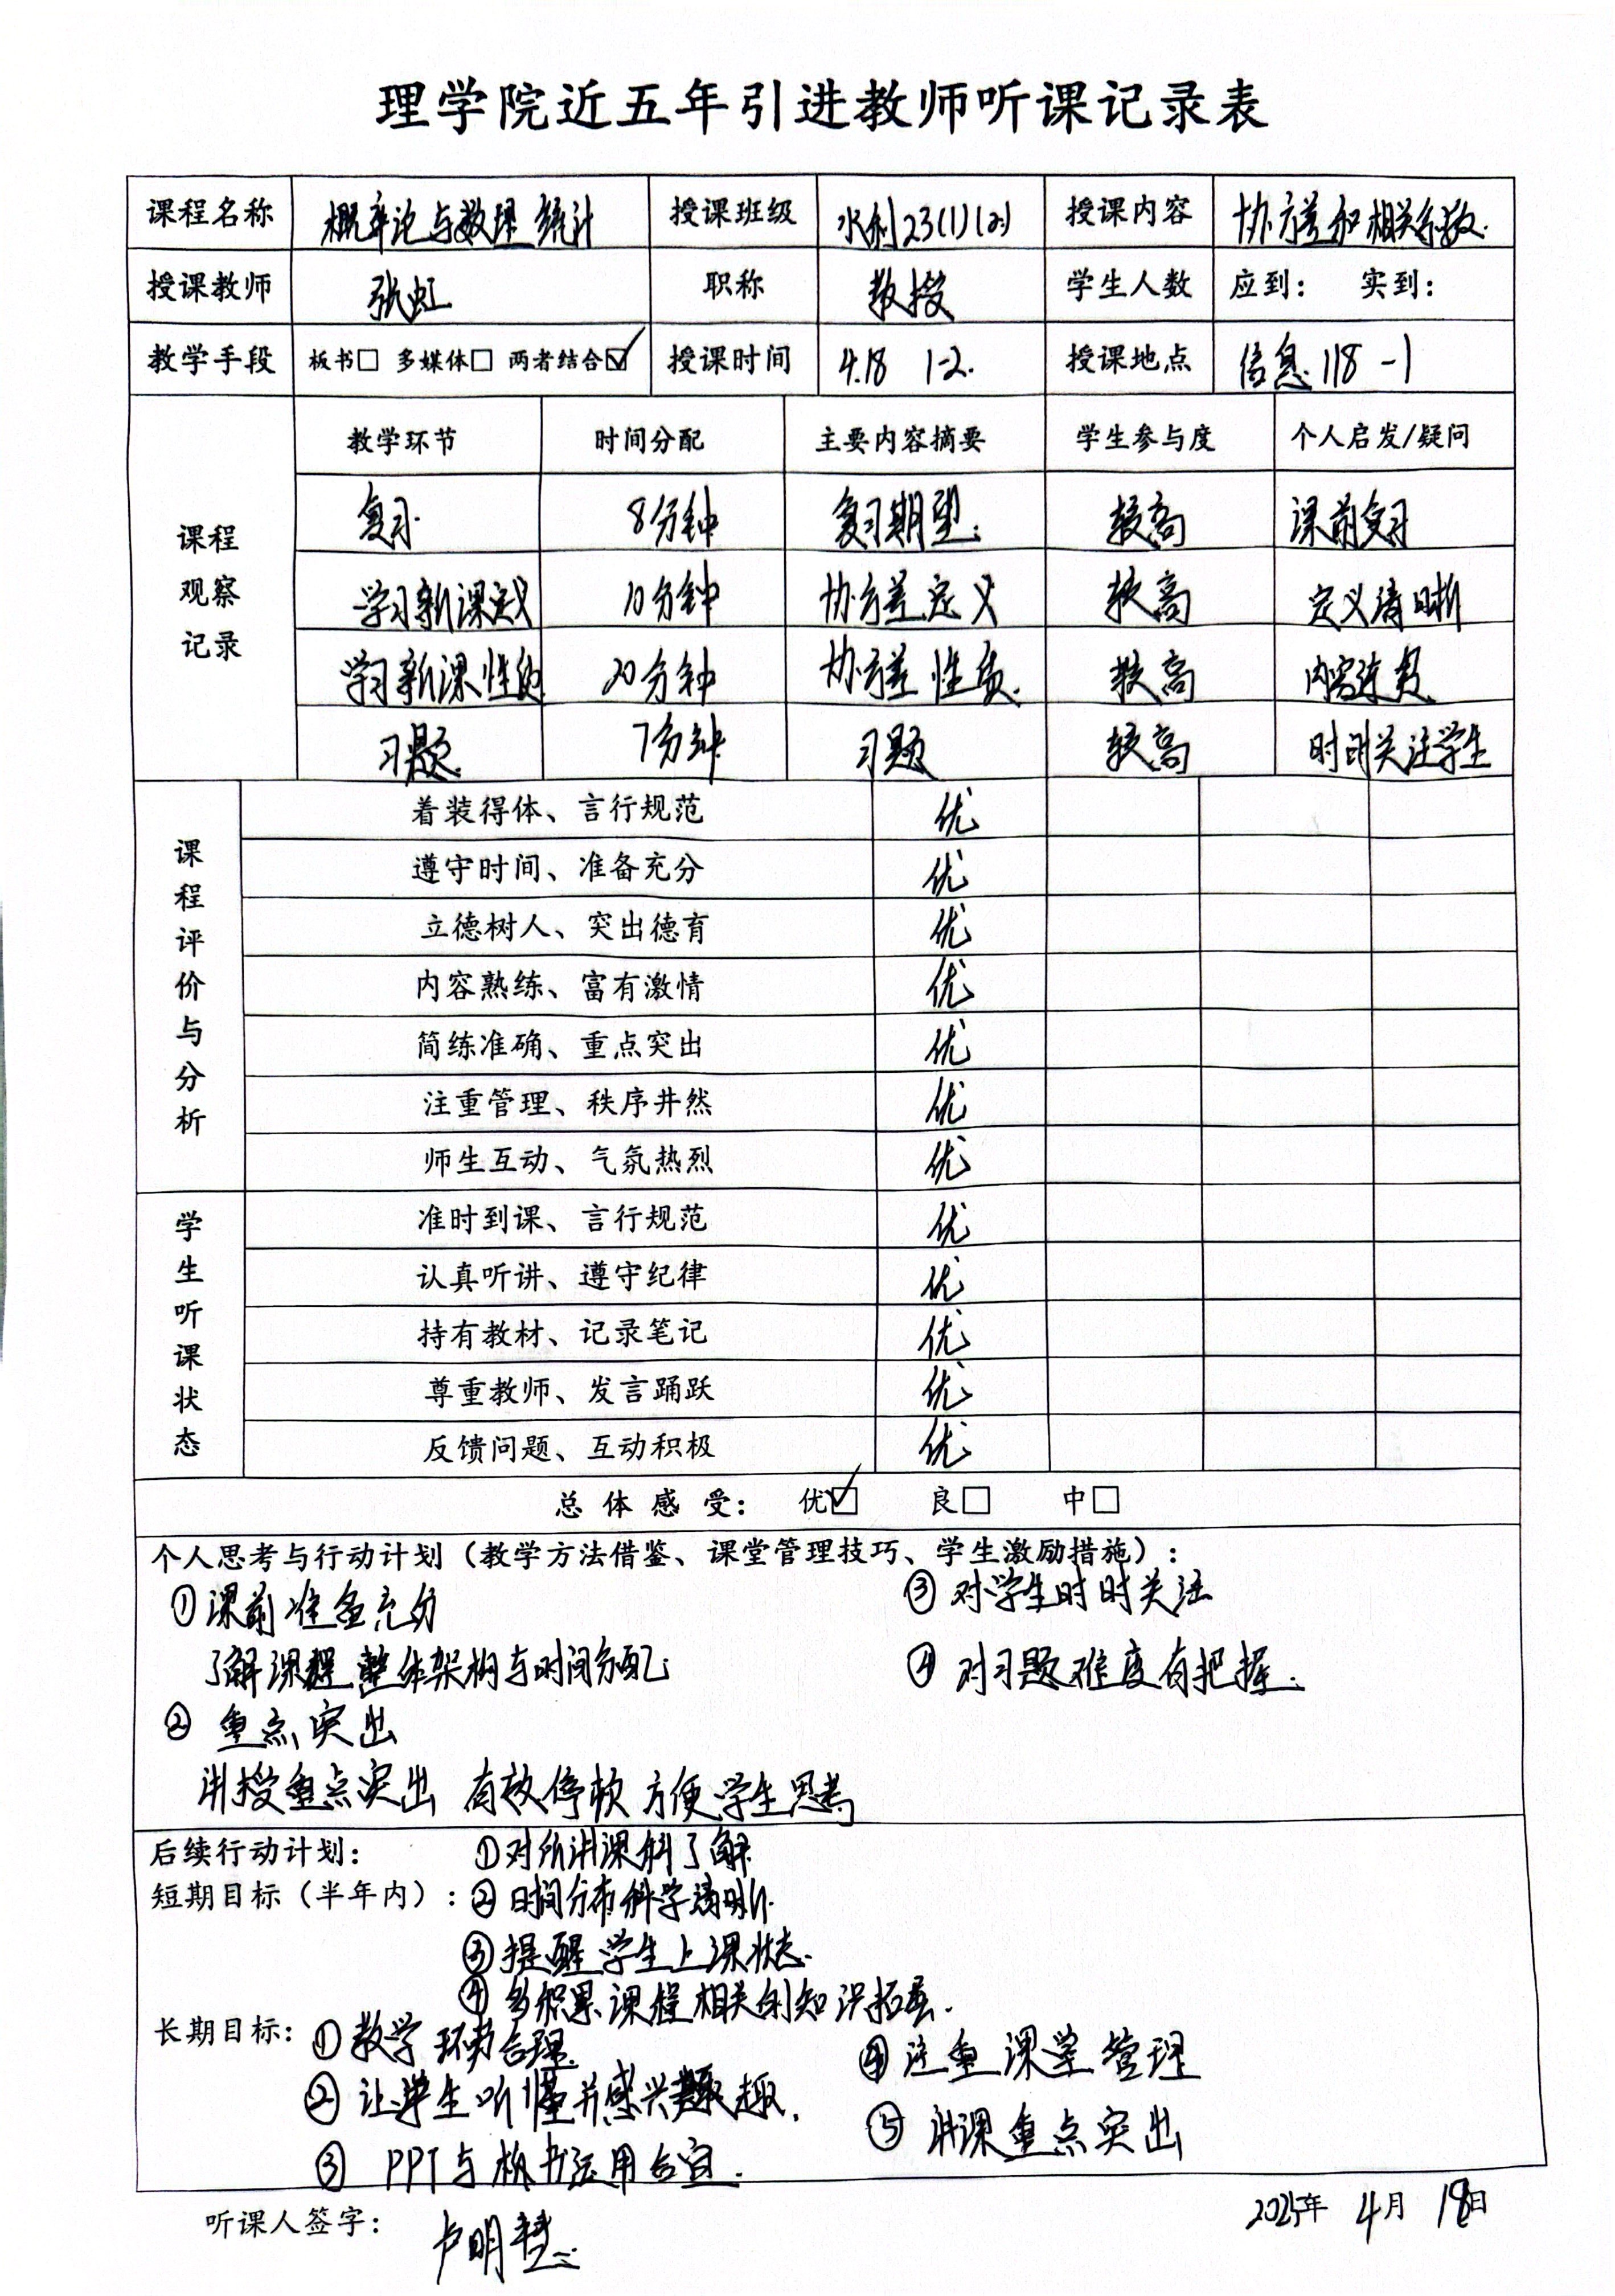 理学院近五年引进教师听课记录表
课程名称 概率论与数理统计 授课班级 水利23(1)(2) 授课内容 协方差和相关系数.
授课教师 张虹 职称 教授 学生人数 应到： 实到：
教学手段 板书□ 多媒体□ 两者结合☑ 授课时间 4.18 1-2. 授课地点 信息118-1
课程观察记录
教学环节 时间分配 主要内容摘要 学生参与度 个人启发/疑问
复习. 8分钟 复习期望. 较高 课前复习
学习新课定义 10分钟 协方差定义 较高 定义清晰
学习新课性质 20分钟 协方差性质. 较高 内容连贯
习题. 7分钟 习题 较高 时时关注学生
课程评价与分析
着装得体、言行规范 优
遵守时间、准备充分 优
立德树人、突出德育 优
内容熟练、富有激情 优
简练准确、重点突出 优
注重管理、秩序井然 优
师生互动、气氛热烈 优
学生听课状态
准时到课、言行规范 优
认真听讲、遵守纪律 优
持有教材、记录笔记 优
尊重教师、发言踊跃 优
反馈问题、互动积极 优
总体感受： 优☑ 良□ 中□
个人思考与行动计划（教学方法借鉴、课堂管理技巧、学生激励措施）：
①课前准备充分
了解课程整体架构与时间分配
② 重点突出
讲授重点突出 有效停顿 方便学生思考
③ 对学生时时关注
④ 对习题难度有把握.
后续行动计划：
短期目标（半年内）：
①对所讲课科了解
②时间分布科学清晰.
③提醒学生上课状态.
④多积累课程相关的知识拓展.
长期目标：
①教学环节合理.
②让学生听懂并感兴趣.
③ PPT与板书运用合宜.
④注重课堂管理
⑤ 讲课重点突出
听课人签字： 卢明慧
2025年 4月 18日